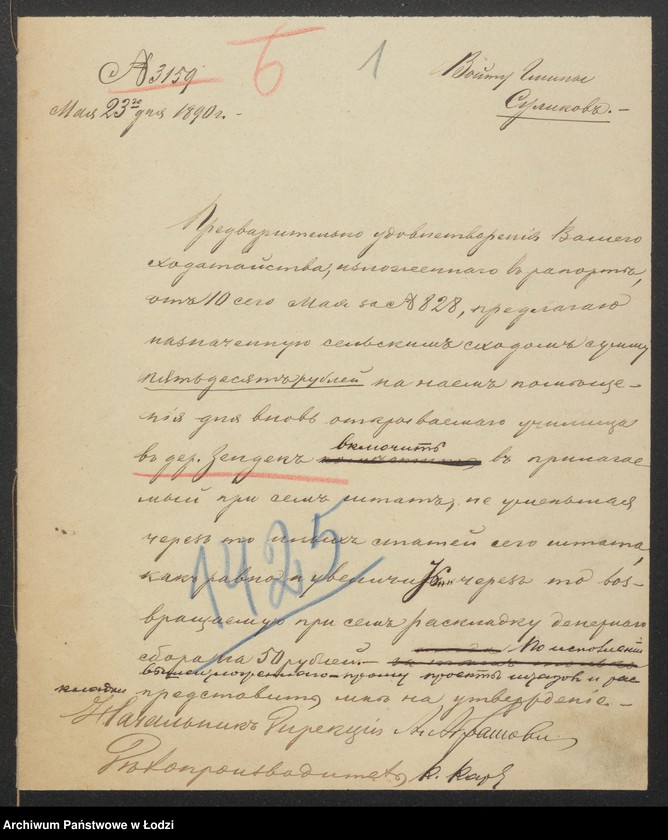 № 3159
Б
1
Мая 23го дня 1890 г. -
Войту Гмины
Суликовъ. -
Предварительно удовлетворенія Вашего
ходатайства, изложеннаго въ рапортѣ,
отъ 10 сего Мая за № 828, предлагаю
назначенную сельскимъ сходомъ сумму
пятьдесятъ рублей на наемъ помѣще-
нія для вновь открываемаго училища
включить
въ дер. Зендекъ въ прилагае
мый при семъ штатъ, не уменьшая
черезъ то иныхъ статей сего штата,
какъ равно и увеличи черезъ то воз-
вращаемую при семъ раскладку денежнаго
сбора на 50 рублей. - По исполненіи
вышеизложеннаго прошу проекты штатовъ и рас
кладки представить мнѣ на утвержденіе. -
1425
Начальникъ Дирекціи
Дѣлопроизводитель К.
Archiwum Państwowe w Łodzi